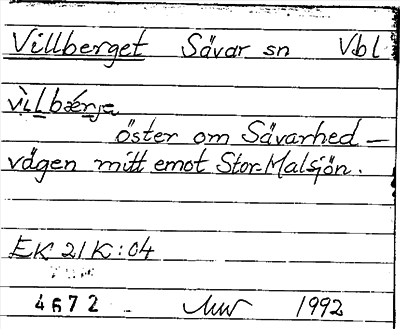 Villberget Sävar sn Vbl
vìlbǽrjə
öster om Sävarhed-
vägen mitt emot Stor-Malsjön.
EK 21K:04
4672 1992